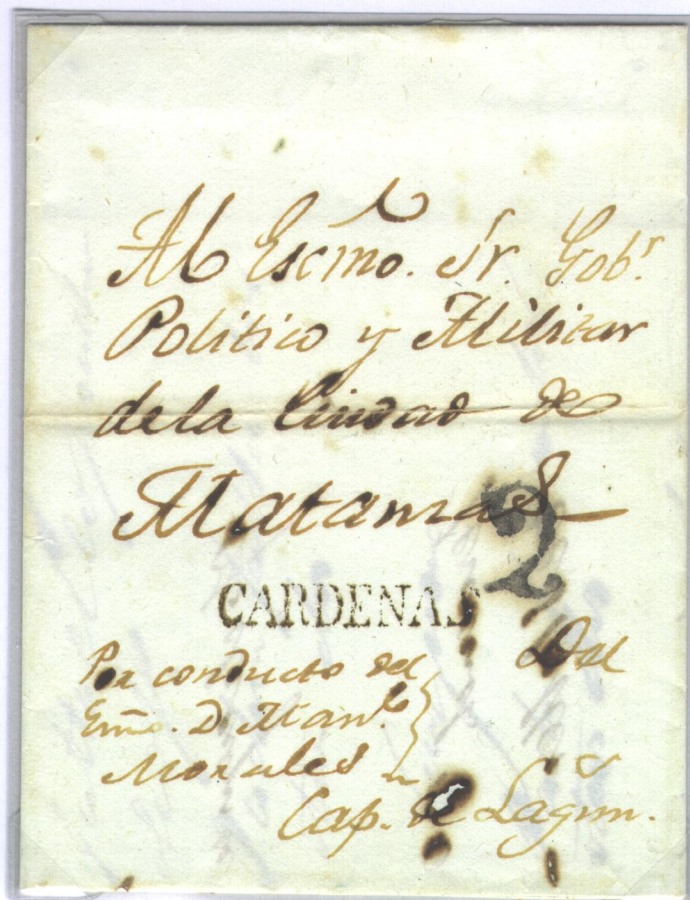 Al Escmo. Sr. Gobr.
Politico y Militar
de la Ciudad de
Matansas
2
CARDENAS
Por conducto del
Emo. D. Manl.
Morales
Del
Cap. de Lagun.